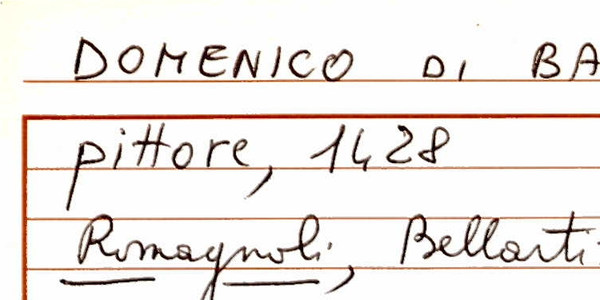 DOMENICO DI BA
pittore, 1428
Romagnoli, Bellarti